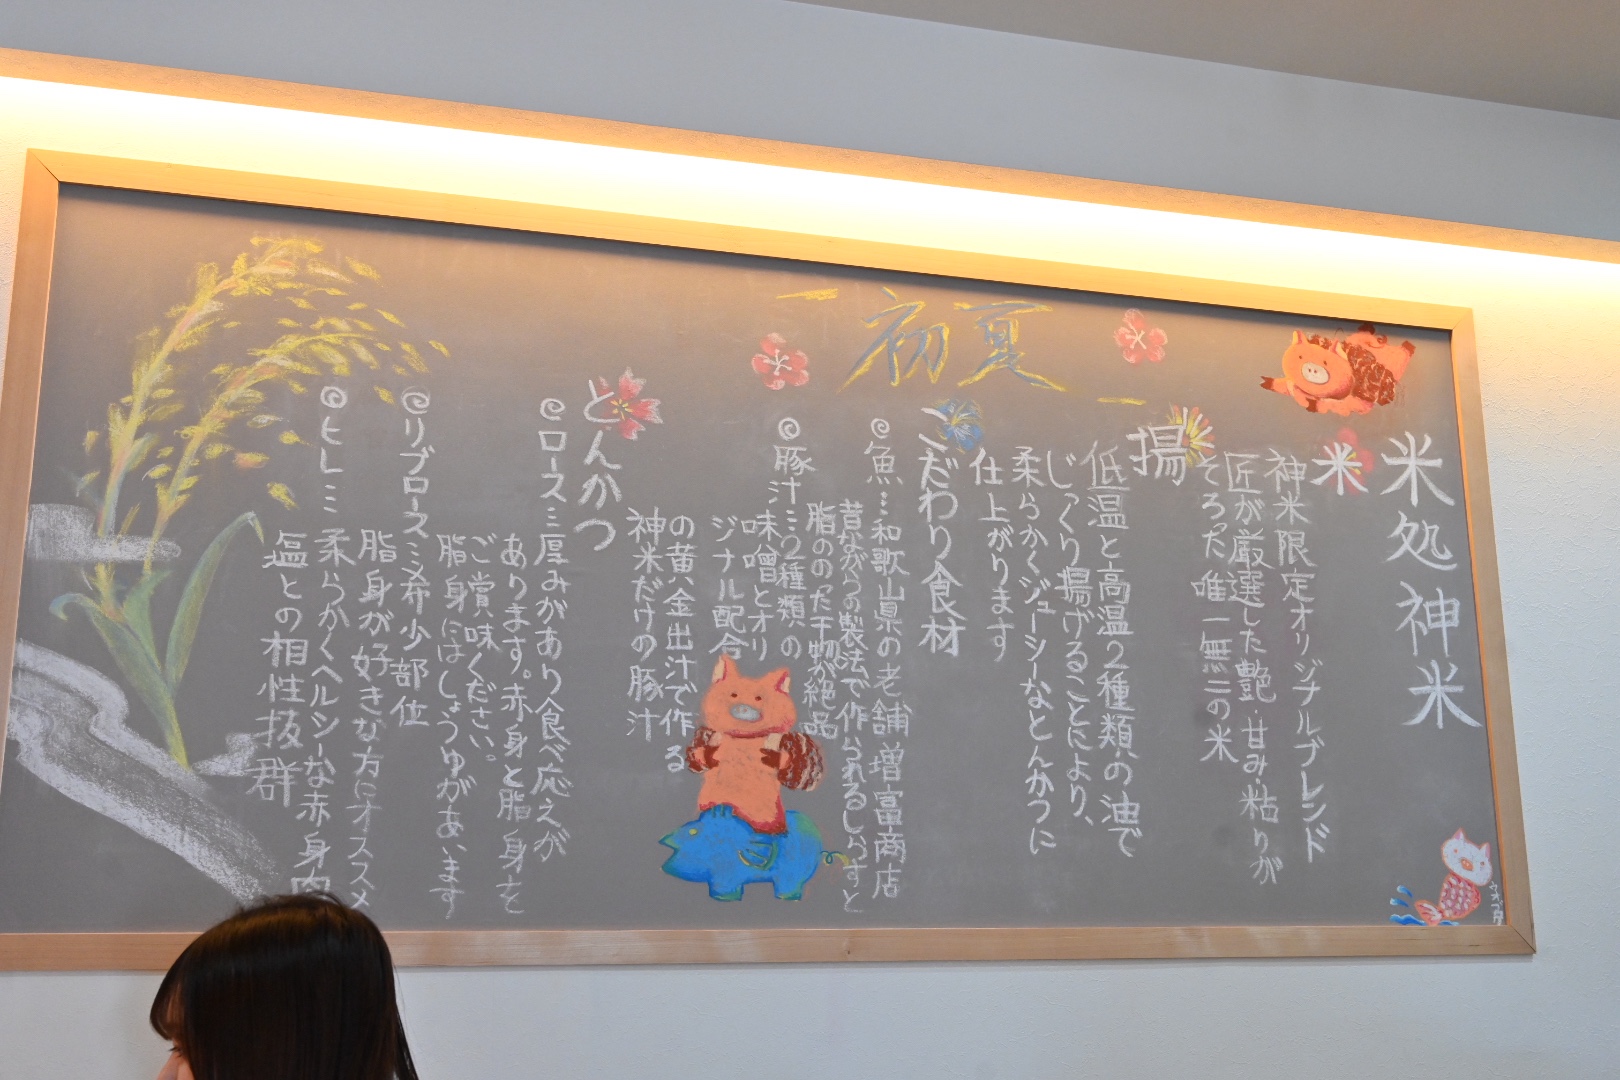 初夏
米処 神米
米
神米限定オリジナルブレンド
匠が厳選した艶・甘み・粘りが
そろった唯一無二の米
揚
低温と高温2種類の油で
じっくり揚げることにより、
柔らかくジューシーなとんかつに
仕上がります
こだわり食材
魚…和歌山県の老舗増富商店
昔ながらの製法で作られるしらすと
脂ののった干物が絶品
豚汁…2種類の
味噌とオリ
ジナル配合
の黄金出汁で作る
神米だけの豚汁
とんかつ
ロース…厚みがあり食べ応えが
あります。赤身と脂身を
ご賞味ください。
脂身にはしょうゆがあいます
リブロース…希少部位
脂身が好きな方にオススメ
ヒレ…柔らかくヘルシーな赤身肉
塩との相性抜群